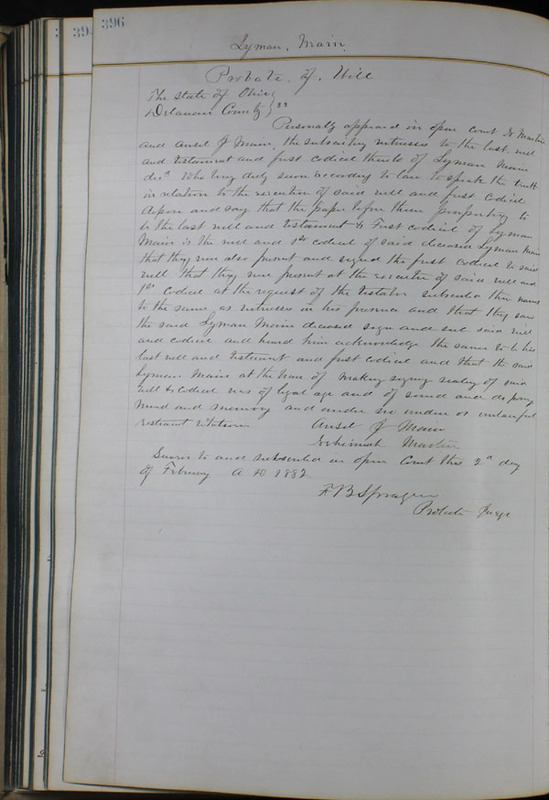 39 396
Lyman, Main
Probate of Will
The State of Ohio }
Delaware County } ss
Personally appeared in open Court Martin
and Ansel J Main, the subscribing witnesses to the last will
and testament and first codicil thereto of Lyman Main
decd Who being duly sworn according to law to speak the truth
in relation to the execution of said will and first codicil
depose and say that the paper before them purporting to
be the last will and testament & First codicil of Lyman
Main is the will and 1st codicil of said deceased Lyman Main
that they were also present and signed the first codicil to said
will that they were present at the execution of said will and
1st Codicil at the request of the testator subscribed their names
to the same as witnesses in his presence and that they saw
the said Lyman Main deceased sign and seal said will
and codicil and heard him acknowledge the same to be his
last will and testament and first codicil and that the said
Lyman Main at the time of making signing sealing of said
will & codicil was of legal age and of sound and disposing
mind and memory and under no undue or unlawful
restraint
Ansel J Main
Martin
Sworn to and subscribed in open Court this 2d day
of February A D 1882
F B Sprague
Probate Judge